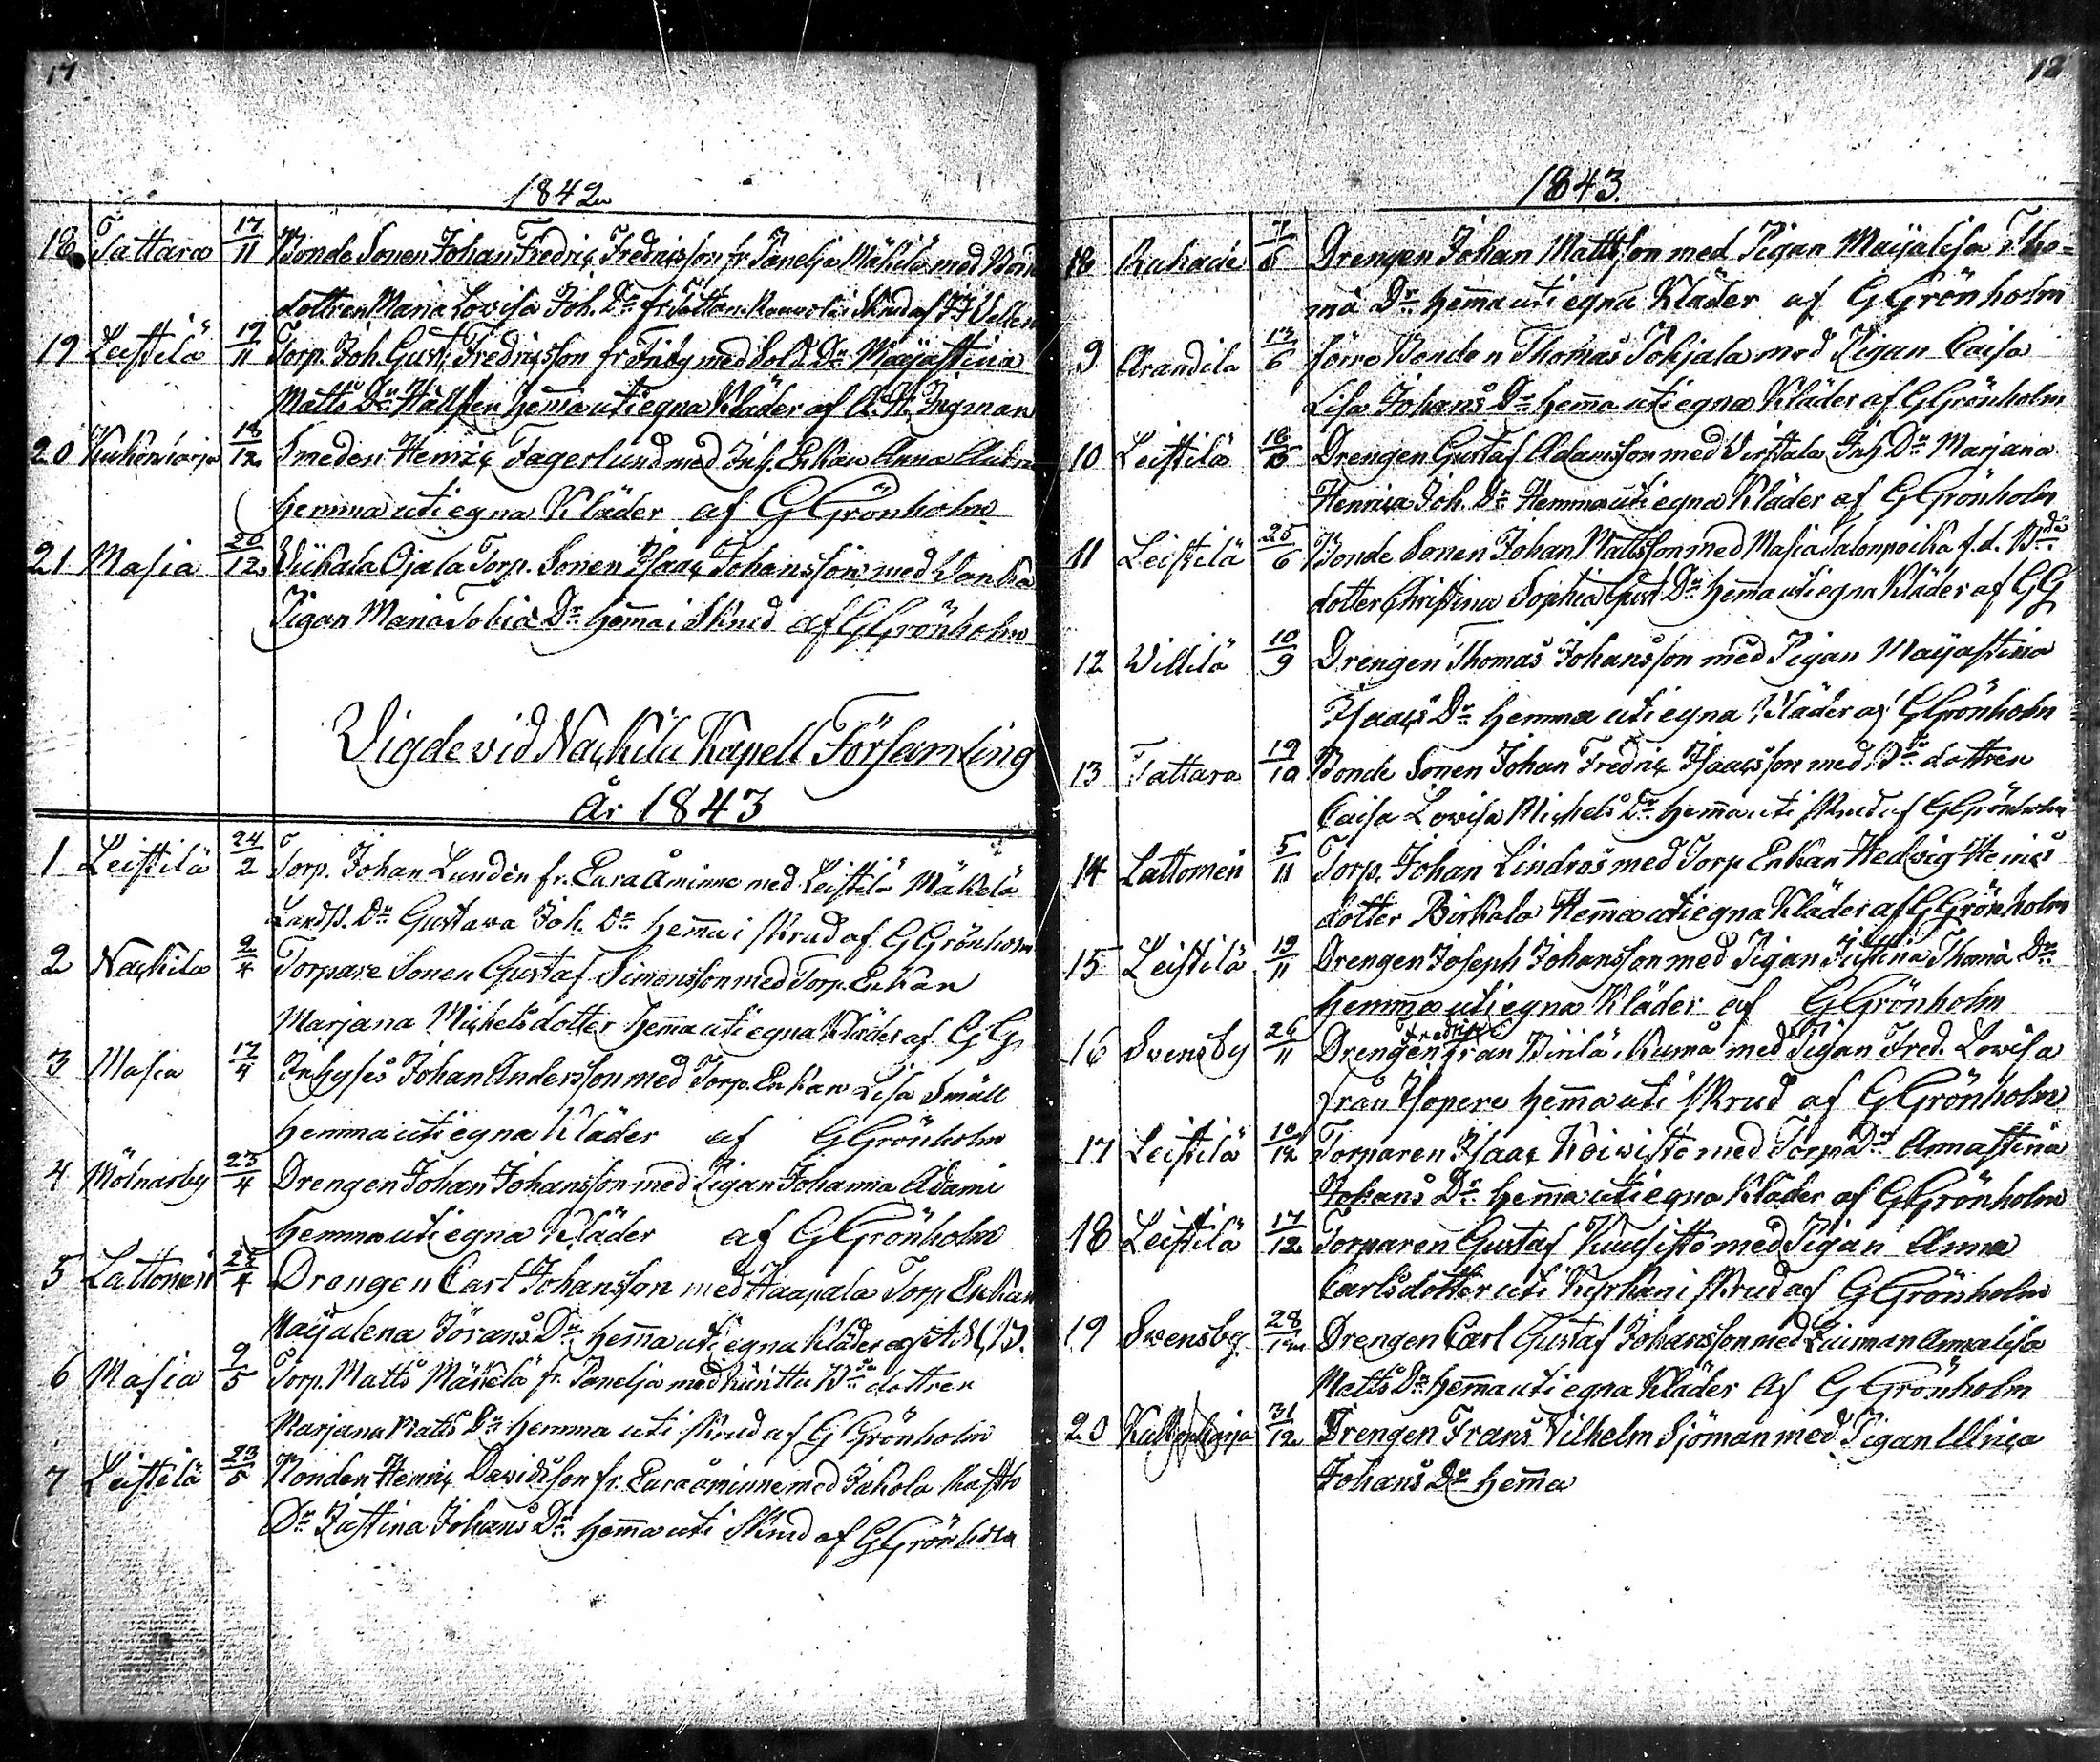 17
1842
18 Tattara 17/11 Bonde Sonen Johan Fredric Fredricsson fr Panelja Mäkilä med Bon
dottren Maria Lovisa Joh. Dr fr Tattara i Skrud af
19 Leistilä 19/11 Torp. Joh Gust. Fredricsson fr Inby med Sold. Dr Maijastina
Matts Dr Hällsten hemma uti egna Kläder af A. W. Ingman
20 18/12 Smeden Henric Fagerlund med Inh. Enkan Anna
hemma uti egna Kläder af GGrönholm
21 Masia 20/12 Ojala Torp. Sonen Isaac Johansson med
Pigan Maria Tobiæ Dr hemma i Skrud af GGrönholm
Vigde vid Nackila Kapell Församling
År 1843
1 Leistilä 24/2 Torp. Johan Lundén fr. Eura Åminne med Leistilä Mäkelä
Dr Gustava Joh. Dr hemma i skrud af GGrönholm
2 Nackila 2/4 Torpare Sonen Gustaf Simonsson med Torp. Enkan
Marjana Michelsdotter hemma uti egna Kläder af GG
3 Masia 17/4 Inhyses Johan Andersson med Torp. Enkan Lisa Småll
hemma uti egna Kläder af GGrönholm
4 Molnarby 23/4 Drengen Johan Johansson med Pigan Johanna Adami
hemma uti egna Kläder af GGrönholm
5 Lattomeri 25/4 Drengen Carl Johansson med Haapala Torp Enkan
Maijalena Jörans Dr hemma uti egna Kläder af
6 Masia 9/5 Torp. Matts fr. Panelja med dottren
Marjana Matts Dr hemma uti skrud af GGrönholm
7 Leistilä 23/5 Bonden Henric Davidsson fr. Euraåminne med Jakola
Dr Justina Johans Dr hemma uti Skrud af GGrönholm
18
1843.
8 Ruhade 7/6 Drengen Johan Mattsson med Pigan Maijalisa Tho=
mæ Dr hemma uti egna Kläder af GGrönholm
9 Arandila 13/6 förre Bonden Thomas Pohjala med Pigan Caisa
Lisa Johans Dr hemma uti egna Kläder af GGrönholm
10 Leistilä 16/6 Drengen Gustaf Adamsson med Inh Dr Marjana
Henrica Joh. Dr Hemma uti egna Kläder af GGrönholm
11 Leistilä 25/6 Bonde Sonen Johan Mattsson med Masia Salonpoika f.d. Bde
dotter Christina Sophia Gust Dr hemma uti egna Kläder af GG
12 Villilä 10/9 Drengen Thomas Johansson med Pigan Maijastina
Isaacs Dr hemma uti egna Kläder af GGrönholm
13 Tattara 19/10 Bonde Sonen Johan Fredric Isaacsson med Bde dottren
Caisa Lovisa Michels Dr hemma uti skrud af GGrönholm
14 Lattomeri 5/11 Torp. Johan Lindros med Torp Enkan Hedvig Henrics
dotter Birkala Hemma uti egna Kläder af GGrönholm
15 Leistilä 19/11 Drengen Joseph Johansson med Pigan Justina Thomæ Dr
hemma uti egna Kläder af GGrönholm
16 Svensby 26/11 Drengen Fredric från i Kumo med Pigan Fred. Lovisa
från hemma uti skrud af GGrönholm
17 Leistilä 10/12 Torparen Isaac Koivisto med Torp Dr Annastina
Johans Dr hemma uti egna Kläder af GGrönholm
18 Leistilä 17/12 Torparen Gustaf Kuusisto med Pigan Anna
Carlsdotter uti Kyrkan i skrud af GGrönholm
19 Svensby 28/12 Drengen Carl Gustaf Johansson med Annalisa
Matts Dr hemma uti egna Kläder af GGrönholm
20 31/12 Drengen Frans Vilhelm Sjöman med Pigan Ulrica
Johans Dr hemma